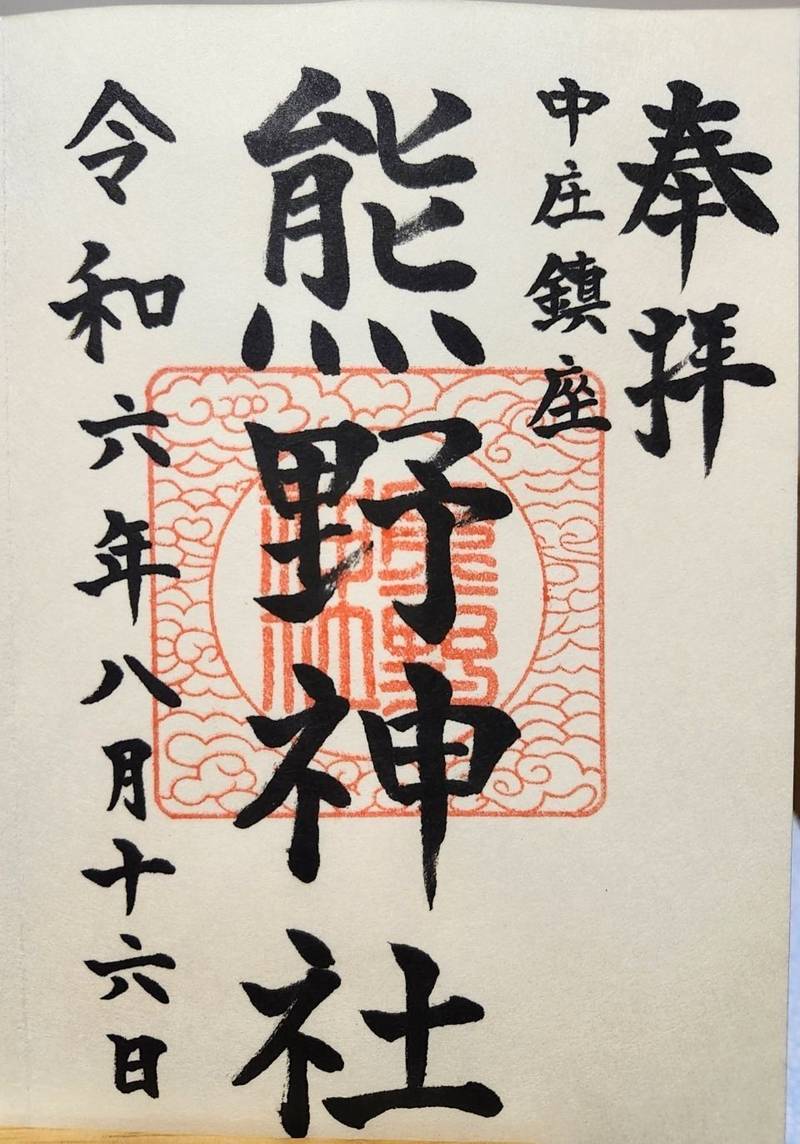 奉拝
中庄鎮座
熊野神社
令和六年八月十六日